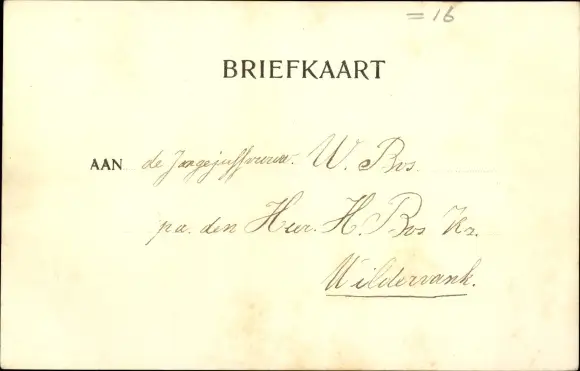 = 16
BRIEFKAART
AAN de Jongejuffrouw. W. Bos.
pa. den Heer. H. Bos Kz.
Wildervank.